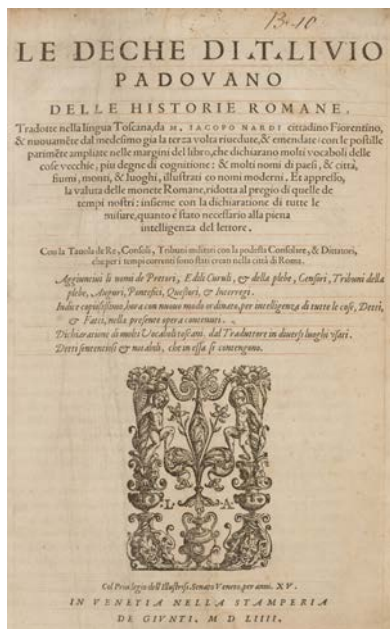 13-10
LE DECHE DI.T.LIVIO
PADOVANO
DELLE HISTORIE ROMANE,
Tradotte nella lingua Toscana, da M. IACOPO NARDI cittadino Fiorentino,
& nuouamẽte dal medesimo gia la terza volta riuedute, & emendate: con le postille
parimẽte ampliate nelle margini del libro, che dichiarano molti vocaboli delle
cose vecchie, piu degne di cognitione: & molti nomi di paesi, & città,
fiumi, monti, & luoghi, illustrati co nomi moderni. Et appresso,
la valuta delle monete Romane, ridotta al pregio di quelle de
tempi nostri: insieme con la dichiaratione di tutte le
misure, quanto è stato necessario alla piena
intelligenza del lettore.
Con la Tauola de Re, Consoli, Tribuni militari con la podestà Consolare, & Dittatori,
che per i tempi correnti sono stati creati nella città di Roma.
Aggiuntiui li nomi de Pretori, Edili Curuli, & della plebe, Censori, Tribuni della
plebe, Auguri, Pontefici, Questori, & Interregi.
Indice copiosissimo, hora con nuouo modo ordinato, per intelligenza di tutte le cose, Detti,
& Fatti, nella presente opera contenuti.
Dichiaratione di molti Vocaboli toscani, dal Traduttore in diuersi luoghi vsati.
Detti sententiosi & notabili, che in essa si contengono.
L A
Col Priuilegio dell'Illustriss. Senato Veneto, per anni XV.
IN VENETIA NELLA STAMPERIA
DE GIVNTI. M D LIIII.